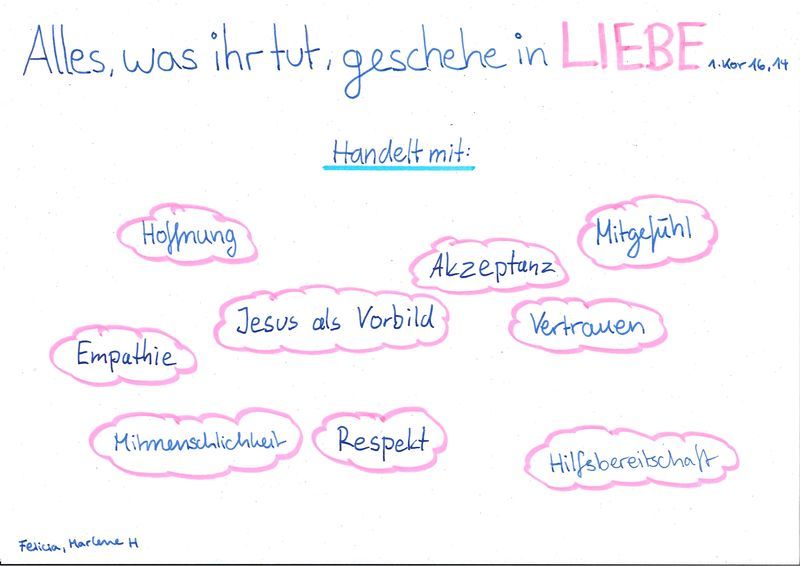 Alles, was ihr tut, geschehe in LIEBE 1. Kor 16, 14
Handelt mit:
Hoffnung
Mitgefühl
Akzeptanz
Jesus als Vorbild
Vertrauen
Empathie
Mitmenschlichkeit
Respekt
Hilfsbereitschaft
Felicia, Marlene H